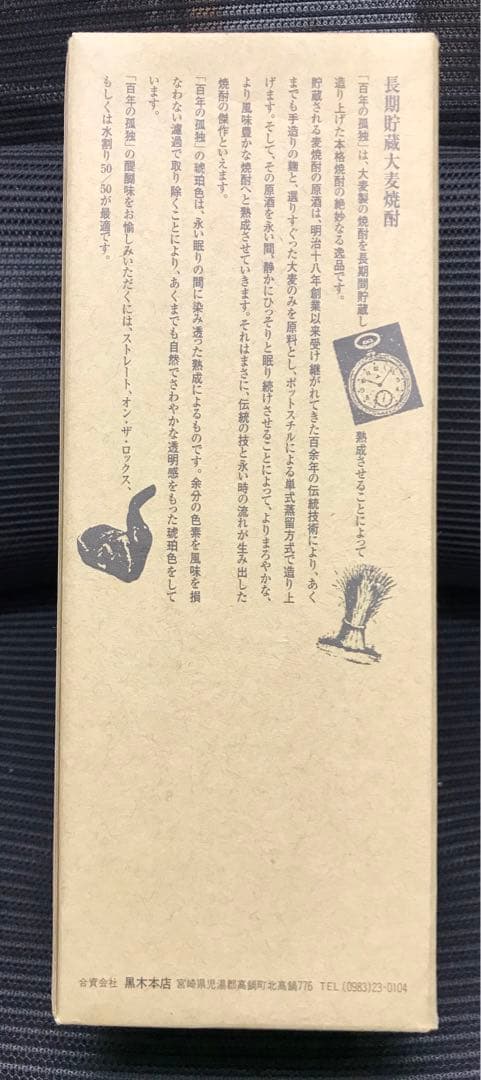 長期貯蔵大麦焼酎
「百年の孤独」は、大麦製の焼酎を長期間貯蔵し 熟成させることによって
造り上げた本格焼酎の絶妙なる逸品です。
貯蔵される麦焼酎の原酒は、明治十八年創業以来受け継がれてきた百余年の伝統技術により、あく
までも手造りの麹と、選りすぐった大麦のみを原料とし、ポットスチルによる単式蒸留方式で造り上
げます。そして、その原酒を永い間、静かにひっそりと眠り続けさせることによって、よりまろやかな、
より風味豊かな焼酎へと熟成させていきます。それはまさに、伝統の技と永い時の流れが生み出した
焼酎の傑作といえます。
「百年の孤独」の琥珀色は、永い眠りの間に染み透った熟成によるものです。余分の色素を風味を損
なわない濾過で取り除くことにより、あくまでも自然でさわやかな透明感をもった琥珀色をして
います。
「百年の孤独」の醍醐味をお愉しみいただくには、ストレート、オン・ザ・ロックス、
もしくは水割り50/50が最適です。
合資会社 黒木本店 宮崎県児湯郡高鍋町北高鍋776 TEL(0983)23-0104